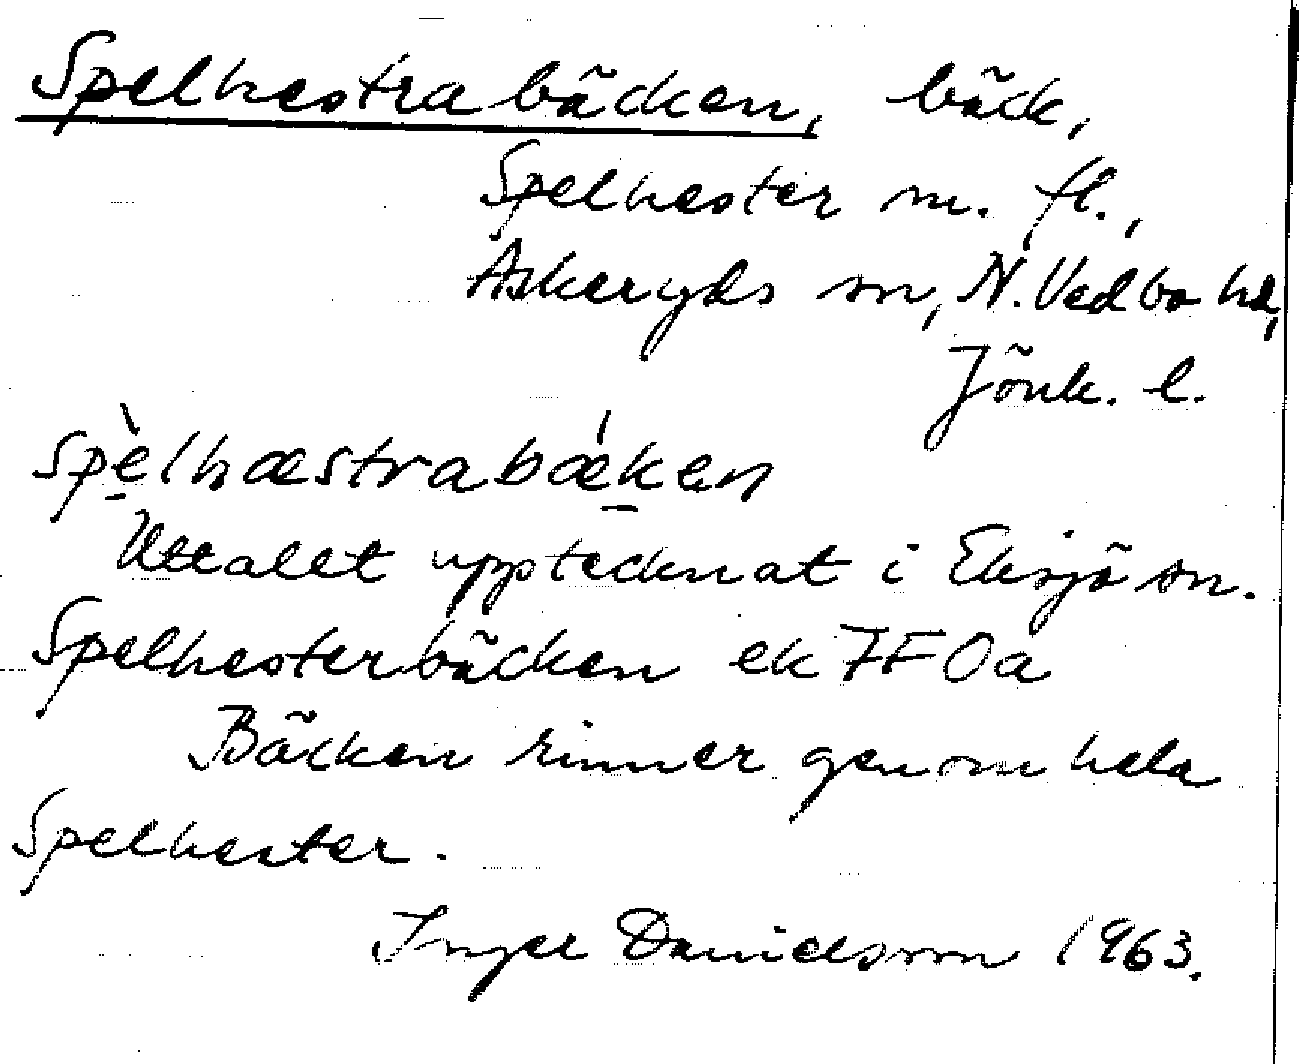 Spelhestrabäcken, bäck,
Spelhester m. fl.,
Askeryds sn, N. Vedbo hd,
Jönk. l.
spèlhæstrabǽken
Uttalet upptecknat i Eksjö sn.
Spelhesterbäcken ek 7F0a
Bäcken rinner genom hela
Spelhester.
Inger Danielsson 1963.